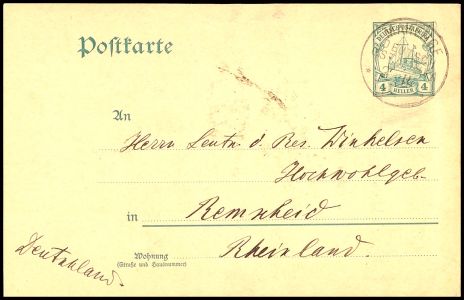 Postkarte
4 HELLER 4
An
Herrn Leutn. d. Res. Winkelsen
Hochwohlgeb.
in Remscheid
Wohnung
(Straße und Hausnummer)
Rheinland.
Deutschland.